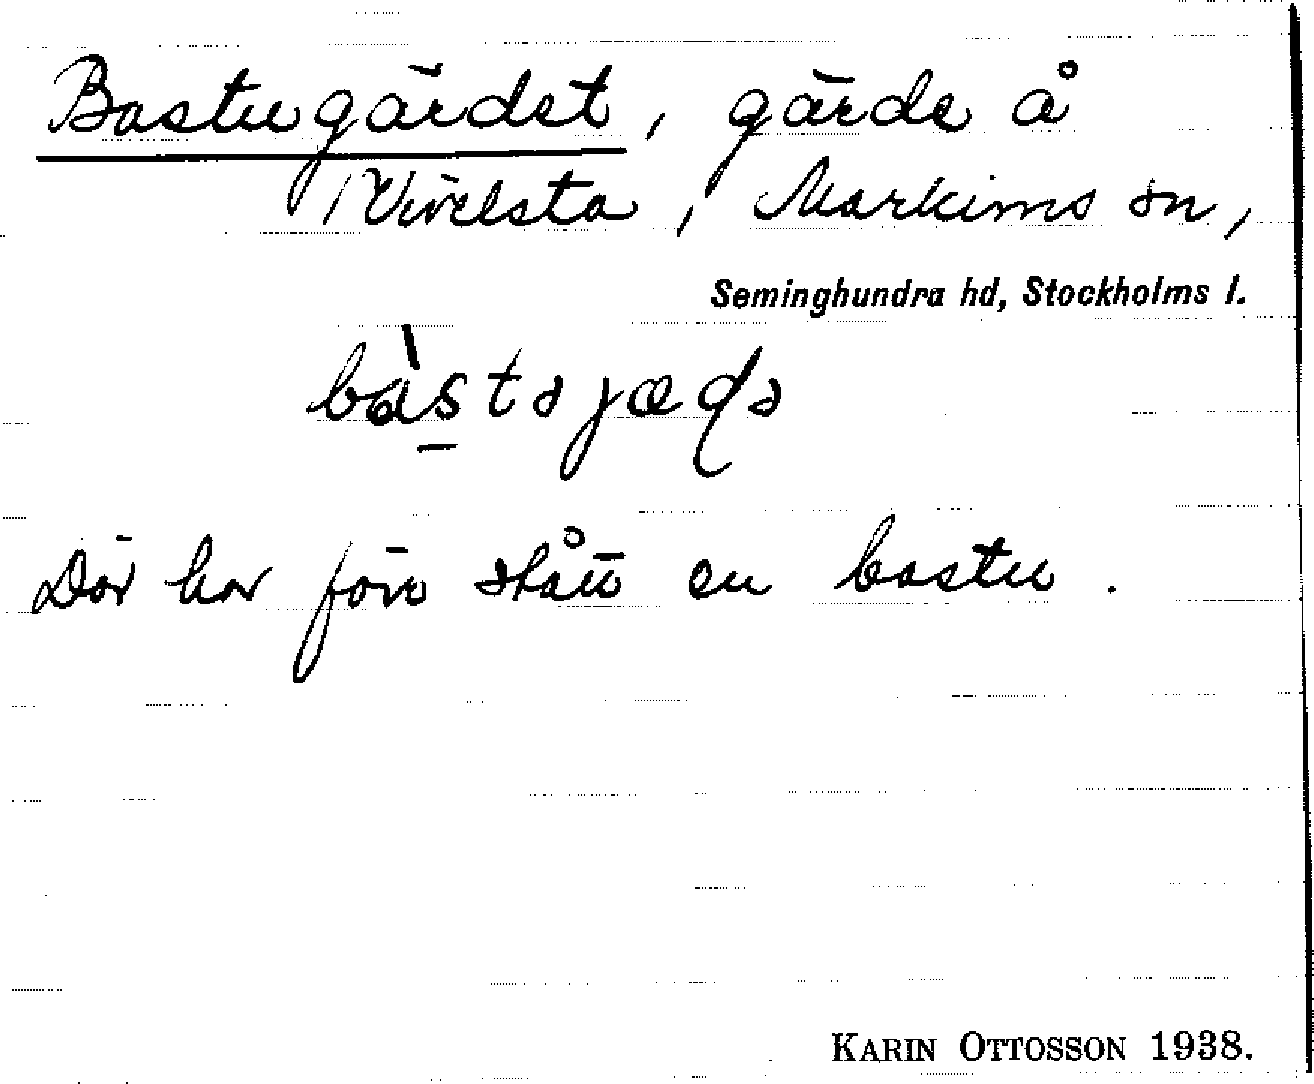 Bastugärdet, gärde å
Vivelsta, Markims sn,
Seminghundra hd, Stockholms l.
Där har förr stått en bastu.
KARIN OTTOSSON 1938.